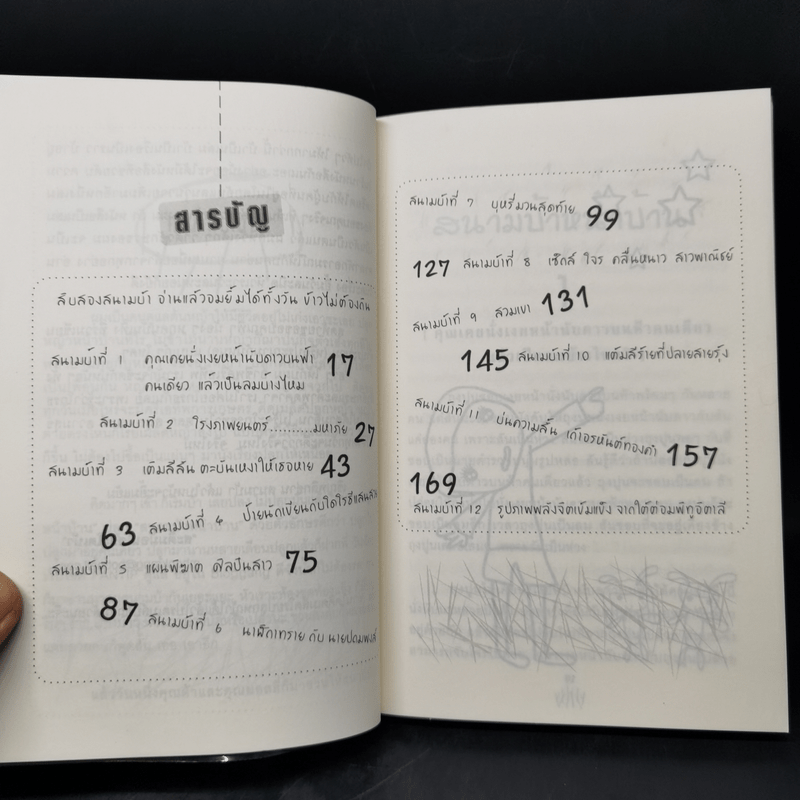 สารบัญ
สิบสองสนามบ้า อ่านแล้วอมยิ้มได้ทั้งวัน ข้าวไม่ต้องกิน
สนามบ้าที่ 1 คุณเคยนั่งเงยหน้านับดาวบนฟ้า 17
คนเดียว แล้วเป็นลมบ้างไหม
สนามบ้าที่ 2 โรงภาพยนตร์..........มหาภัย 27
สนามบ้าที่ 3 เติมสีสัน ตะบันเหงาให้เธอหาย 43
63 สนามบ้าที่ 4 ป้ายนักเขียนกับไดโรซี่แสน
สนามบ้าที่ 5 แผนพิฆาต ศิลปินสาว 75
87 สนามบ้าที่ 6 นาฬิกาทราย กับ นายปถมพงส์
สนามบ้าที่ 7 บุหรี่มวนสุดท้าย 99
127 สนามบ้าที่ 8 เซ็กส์ โจร คลื่นหนาว สาวพาณิชย์
สนามบ้าที่ 9 สวมเขา 131
145 สนามบ้าที่ 10 แต้มสีร้ายที่ปลายสายรุ้ง
สนามบ้าที่ 11 บ่นความสั้น เก้าอรหันต์ทองคำ 157
169
สนามบ้าที่ 12 รูปภาพพลังจิตเข้มแข็ง จากใต้ต้อมพิทูอิตารี